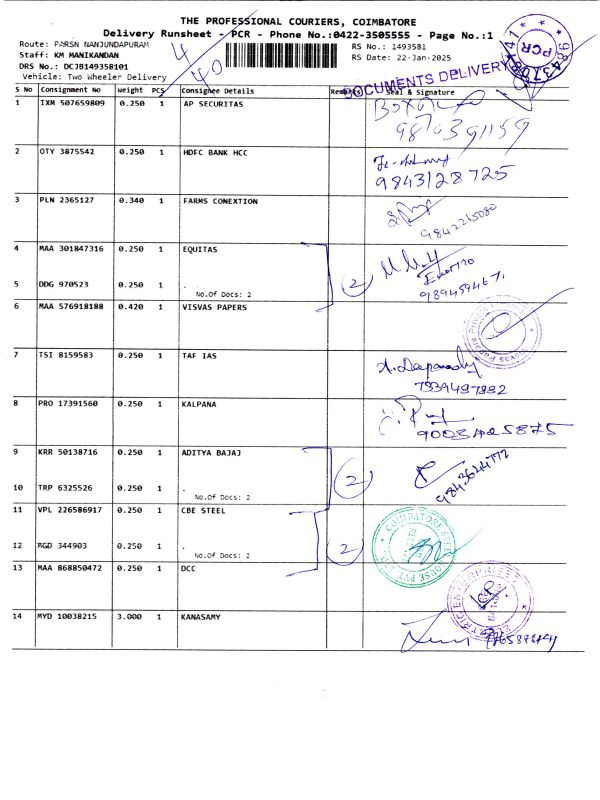 THE PROFESSIONAL COURIERS, COIMBATORE
Delivery Runsheet - PCR - Phone No.:0422-3505555 - Page No.:1
Route: PARSN NANJUNDAPURAM
Staff: KM MANIKANDAN
DRS No.: DCJB149358101
Vehicle: Two Wheeler Delivery
RS No.: 1493581
RS Date: 22-Jan-2025
4
40
PCR
DOCUMENTS DELIVERY
S No Consignment No Weight PCS Consignee Details Remarks Seal & Signature
1 IXM 507659809 0.250 1 AP SECURITAS
9870391159
2 OTY 3875542 0.250 1 HDFC BANK HCC
9843128725
3 PLN 2365127 0.340 1 FARMS CONEXTION
9842245080
4 MAA 301847316 0.250 1 EQUITAS
2
5 DDG 970523 0.250 1 .
No.Of Docs: 2
6 MAA 576918188 0.420 1 VISVAS PAPERS
7 TSI 8159583 0.250 1 TAF IAS
8 PRO 17391560 0.250 1 KALPANA
9 KRR 50138716 0.250 1 ADITYA BAJAJ
2
9843644772
10 TRP 6325526 0.250 1 .
No.Of Docs: 2
11 VPL 226586917 0.250 1 CBE STEEL
2
12 MGD 344903 0.250 1 .
No.Of Docs: 2
13 MAA 868850472 0.250 1 DCC
14 MYD 10038215 3.000 1 KANASAMY